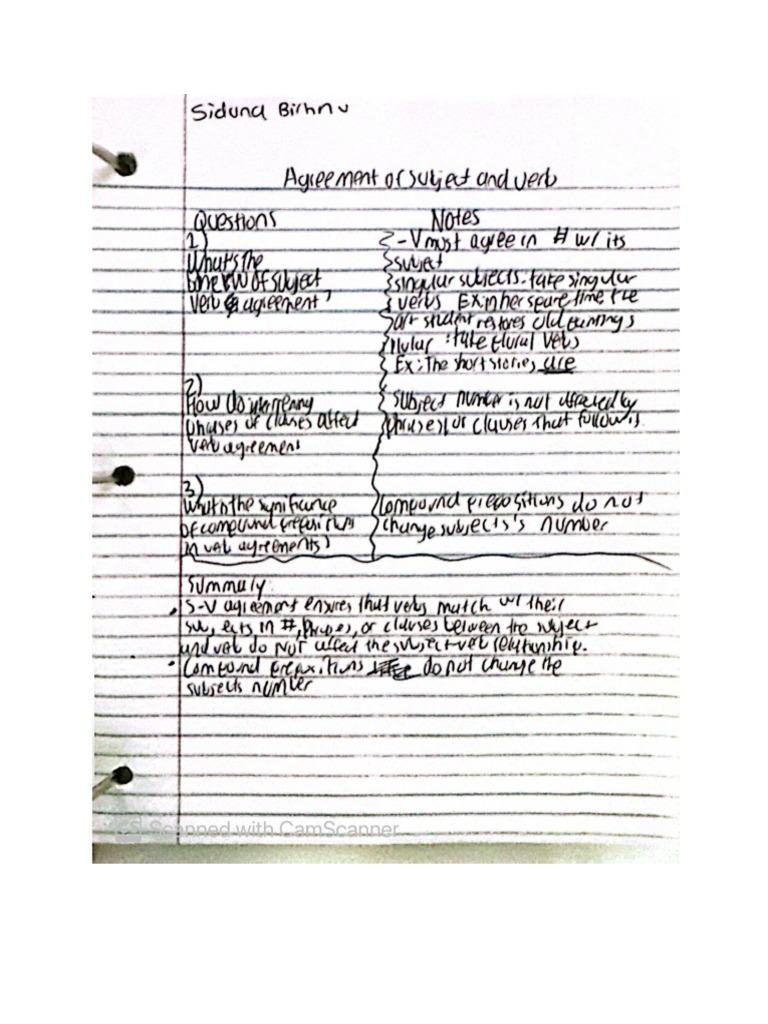 Siduna Birhnu
Agreement of subject and verb
Questions
1)
What's the
of subject
verb agreement?
Notes
-V must agree in # w/ its
subject
singular subjects. take singular
verbs Ex: in her spare time the
art student restores old
: take plural verbs
Ex: The short stories are
2)
How do
phrases or clauses affect
verb agreement
subject number is not affected by
phrases or clauses that follow is.
3)
What's the significance
of compound prepositions
in verb agreements?
Compound prepositions do not
change subjects's number
Summary
S-V agreement ensures that verbs match w/ their
subjects in #, phrases, or clauses between the subject
and verb do NOT affect the subject-verb relationship.
Compound prepositions do not change the
subjects number
Scanned with CamScanner